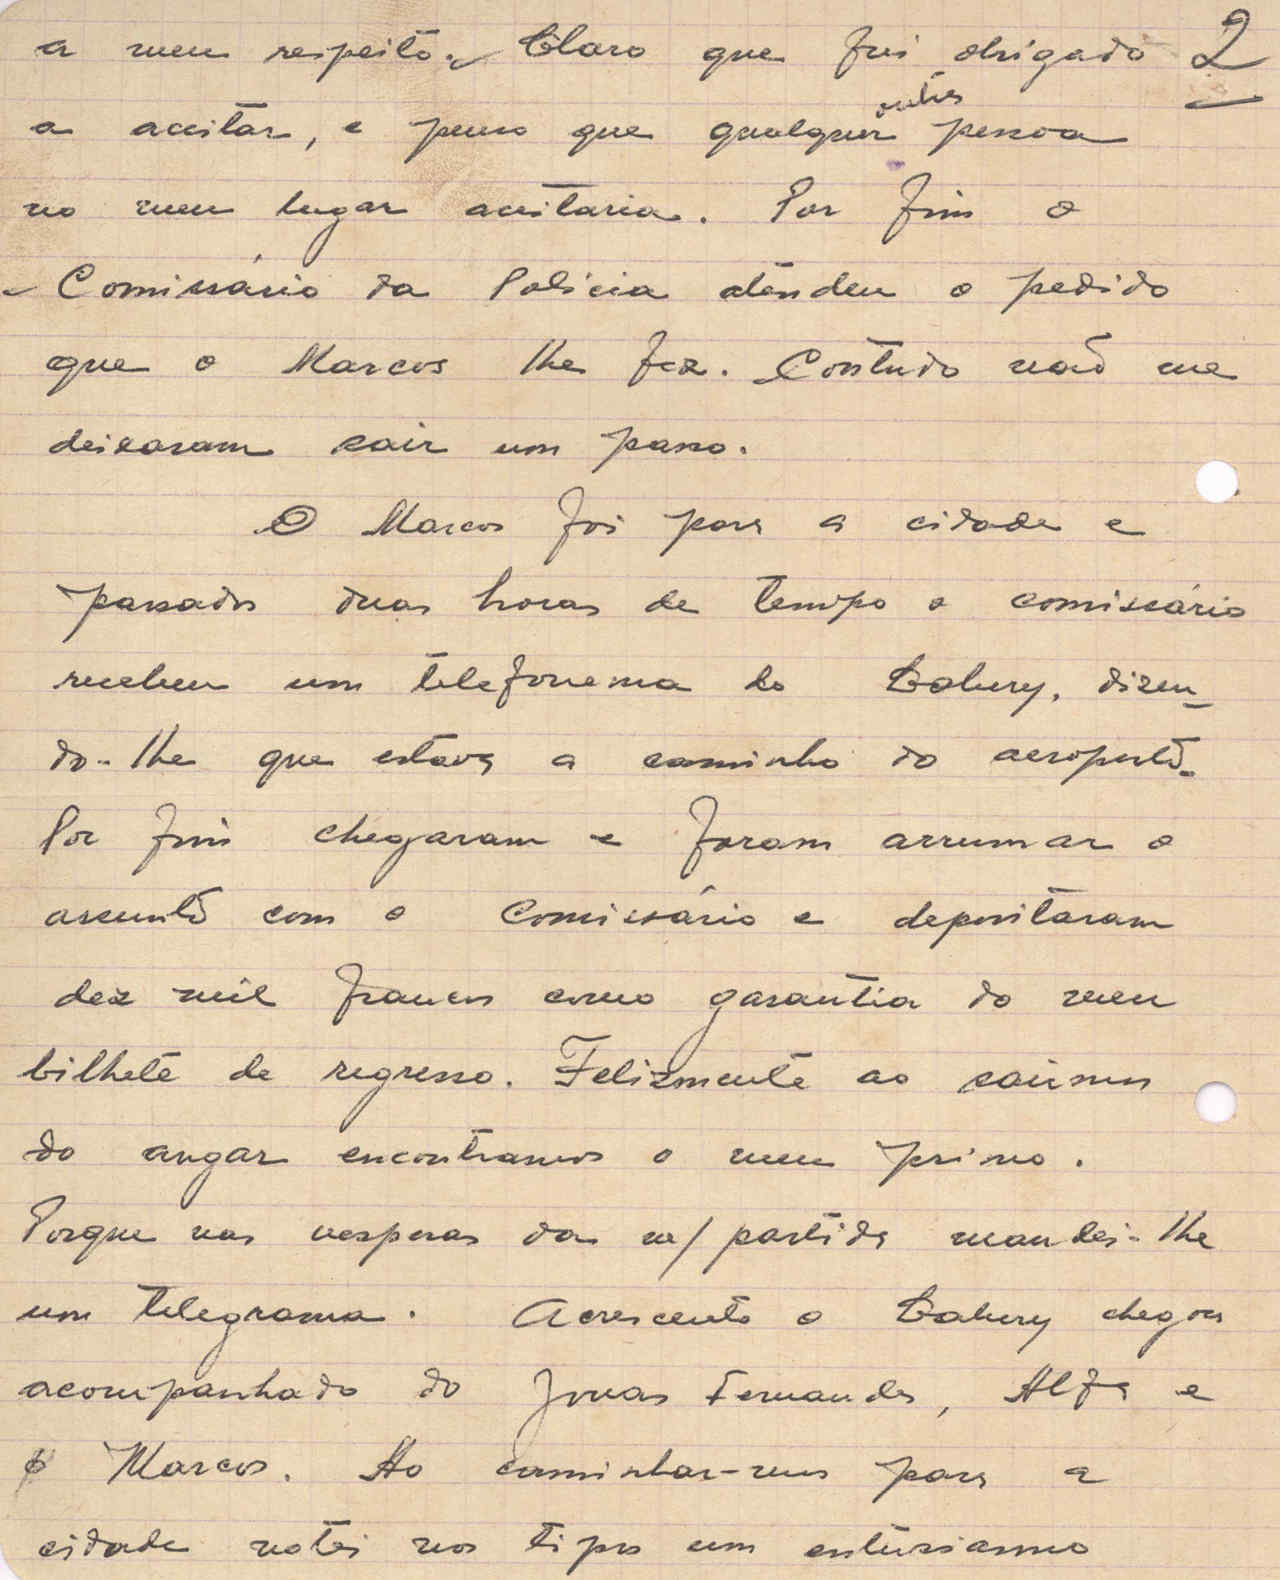 a meu respeito. Claro que fui obrigado 2
a aceitar, e penso que qualquer outra pessoa
no meu lugar aceitaria. Por fim o
Comissário da Policia atendeu o pedido
que o Marcos lhe fez. Contudo não me
deixaram sair um passo.
O Marcos foi para a cidade e
passados duas horas de tempo o comissário
recebeu um telefonema do Bahury, dizen-
do-lhe que estava a caminho do aeroporto.
Por fim chegaram e foram arrumar o
assunto com o Comissário e depositaram
dez mil francos como garantia do meu
bilhete de regresso. Felizmente ao sairmos
do angar encontramos o meu primo.
Porque nas vesperas da m/ partida mandei-lhe
um telegrama. Acrescento o Bahury chegou
acompanhado do Jonas Fernandes, Alfa e
o Marcos. Ao caminhar-mos para a
cidade notei nos tipos um entusiasmo